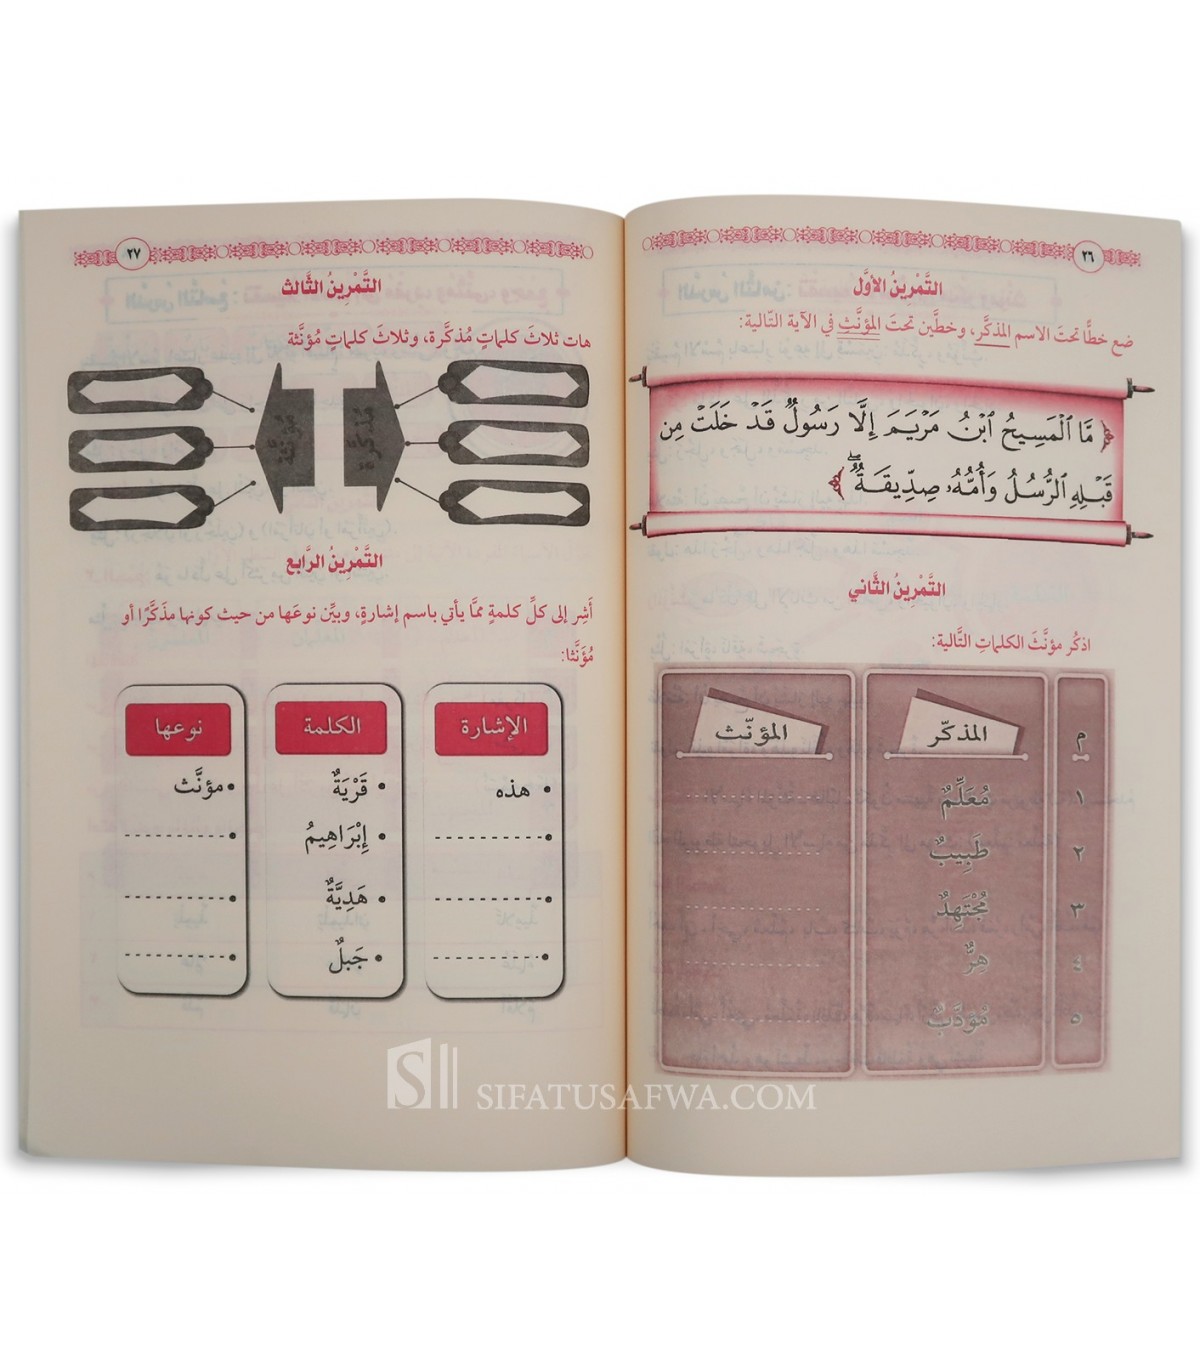 ٢٦
التَّمْرِينُ الأَوَّل
ضع خطًّا تحتَ الاسم المذكَّر، وخطَّين تحتَ المؤنَّثِ في الآية التَّالية:
﴿ مَّا ٱلْمَسِيحُ ٱبْنُ مَرْيَمَ إِلَّا رَسُولٌ قَدْ خَلَتْ مِن
قَبْلِهِ ٱلرُّسُلُ وَأُمُّهُۥ صِدِّيقَةٌۖ ﴾
التَّمْرِينُ الثَّاني
اذكُر مؤنَّثَ الكلماتِ التَّالية:
م المذكّر المؤنّث
١ مُعَلِّمٌ
٢ طَبِيبٌ
٣ مُجْتَهِدٌ
٤ هِرٌّ
٥ مُؤَدَّبٌ
٢٧
التَّمْرِينُ الثَّالث
هات ثلاثَ كلماتٍ مُذكَّرة، وثلاثَ كلماتٍ مُؤنَّثة
مُذكَّرة
مُؤنَّثة
التَّمْرِينُ الرَّابع
أَشِر إلى كلِّ كلمةٍ ممَّا يأتي باسم إشارةٍ، وبيِّن نوعَها من حيث كونها مذَكَّرًا أو
مُؤَنَّثا:
الإشارة الكلمة نوعها
• هذه • قَرْيَةٌ • مؤنَّث
• إِبْرَاهِيمُ
• هَدِيَّةٌ
• جَبلٌ
SIFATUSAFWA.COM